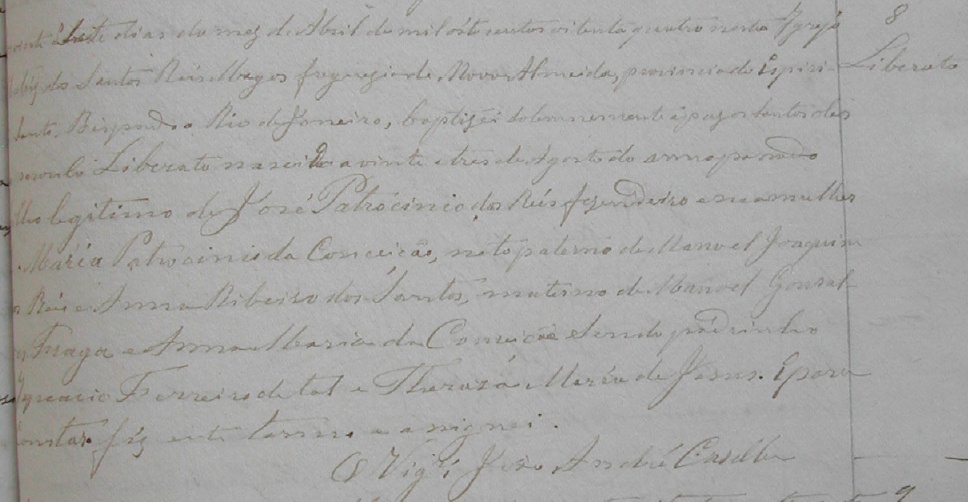 8
Liberato
dias do mez de Abril de mil oito centos oitenta e quatro nesta Igreja
dos Santos Reis Magos freguezia de Nova Almeida, provincia do Espiri-
Santo, Bispado do Rio de Janeiro, baptizei solemnemente e puz os Santos oleos
Liberato nascido a vinte e tres de Agosto do anno passado
legitimo de José Patrocinio dos Reis e sua mulher
Maria Patrocinio da Conceição, neto paterno de Manoel Joaquim
Reis e Anna Ribeiro dos Santos, materno de Manoel Gonsal-
Fraga e Anna Maria da Conceição sendo padrinho
Ignacio Ferreira de tal e Thereza Maria de Jesus. E para
constar fiz este termo e assignei.
O Vigr.º João André Casella
9